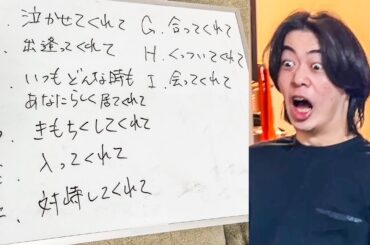 泣かせてくれて
出逢ってくれて
いつもどんな時も
あなたらしく居てくれて
きもちくしてくれて
入ってくれて
対峙してくれて
G. 合ってくれて
H. くっついてくれて
I. 会ってくれて